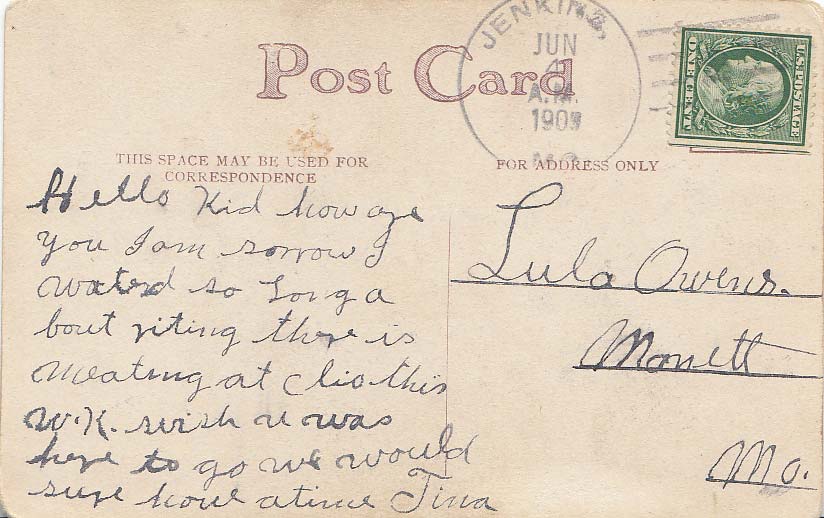 Post Card
JENKINS,
JUN
4
A.M.
1909
MO.
U.S. POSTAGE
ONE CENT
THIS SPACE MAY BE USED FOR
CORRESPONDENCE
FOR ADDRESS ONLY
Hello Kid how are
you I am sorrow I
wated so Long a
bout riting there is
Meating at Clio this
w.K. wish u was
here to go we would
sure have atime Tina
Lula Owens.
Monett
Mo.